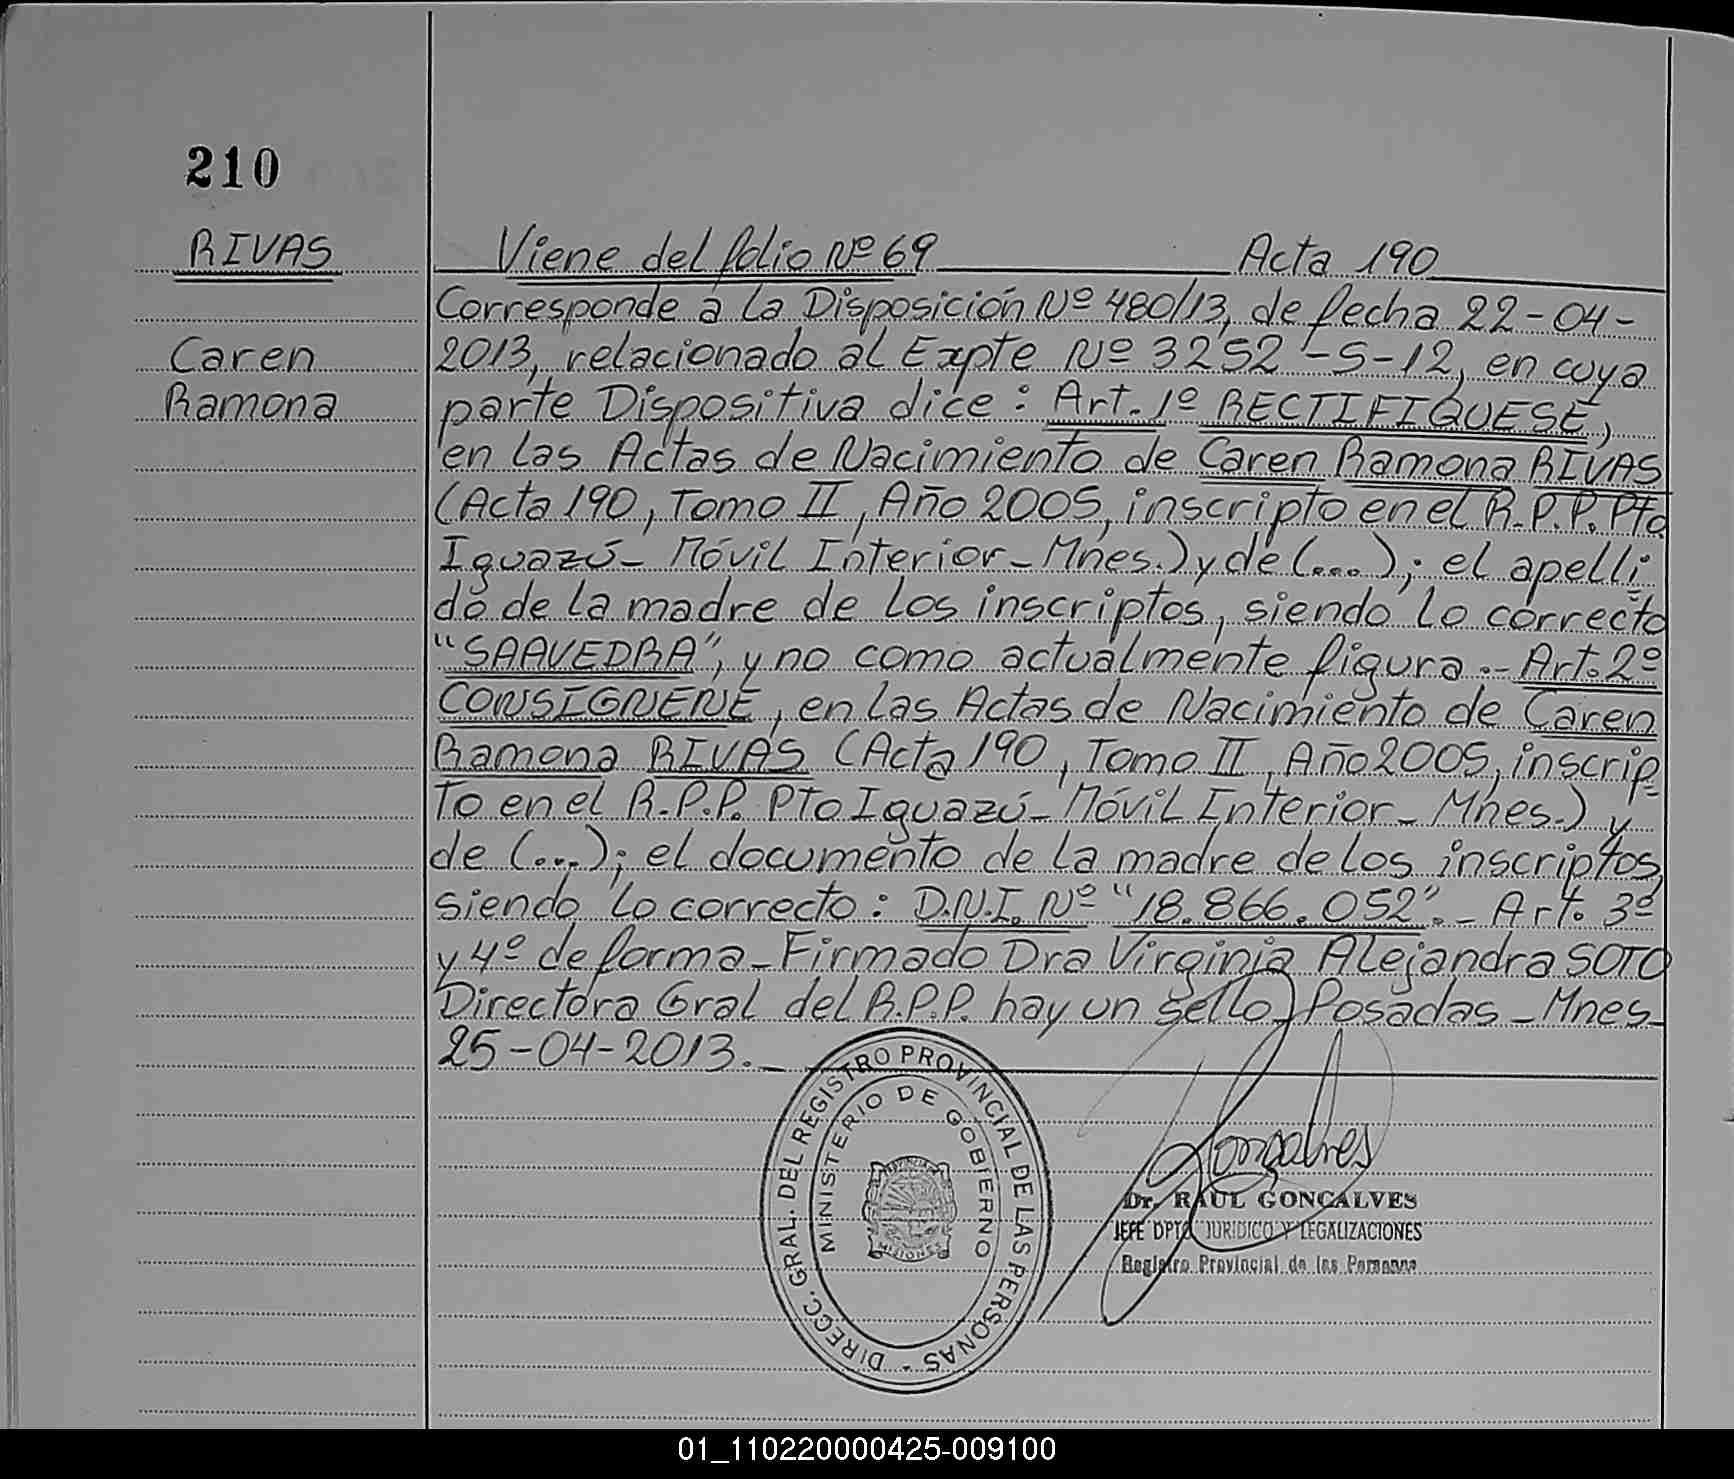 210
RIVAS
Caren
Ramona
Viene del folio Nº 69 Acta 190
Corresponde a la Disposición Nº 480/13, de fecha 22-04-
2013, relacionado al Expte Nº 3252-S-12, en cuya
parte Dispositiva dice: Art. 1º RECTIFIQUESE,
en las Actas de Nacimiento de Caren Ramona RIVAS
(Acta 190, Tomo II, Año 2005, inscripto en el R.P.P. Pto
Iguazú- Móvil Interior- Mnes.) y de (...); el apelli
do de la madre de los inscriptos, siendo lo correcto
"SAAVEDRA", y no como actualmente figura.- Art. 2º
CONSIGNENE, en las Actas de Nacimiento de Caren
Ramona RIVAS (Acta 190, Tomo II, Año 2005, inscrip-
to en el R.P.P. Pto Iguazú- Móvil Interior- Mnes.) y
de (...); el documento de la madre de los inscriptos,
siendo lo correcto: D.N.I. Nº "18.866.052".- Art. 3º
y 4º de forma- Firmado Dra Virginia Alejandra SOTO
Directora Gral del R.P.P. hay un sello) Posadas- Mnes-
25-04-2013.-
DIRECC. GRAL. DEL REGISTRO PROVINCIAL DE LAS PERSONAS -
MINISTERIO DE GOBIERNO
PROVINCIA
MISIONES
Goncalves
Dr. RAUL GONCALVES
JEFE DPTO JURIDICO Y LEGALIZACIONES
Registro Provincial de las Personas
01_110220000425-009100